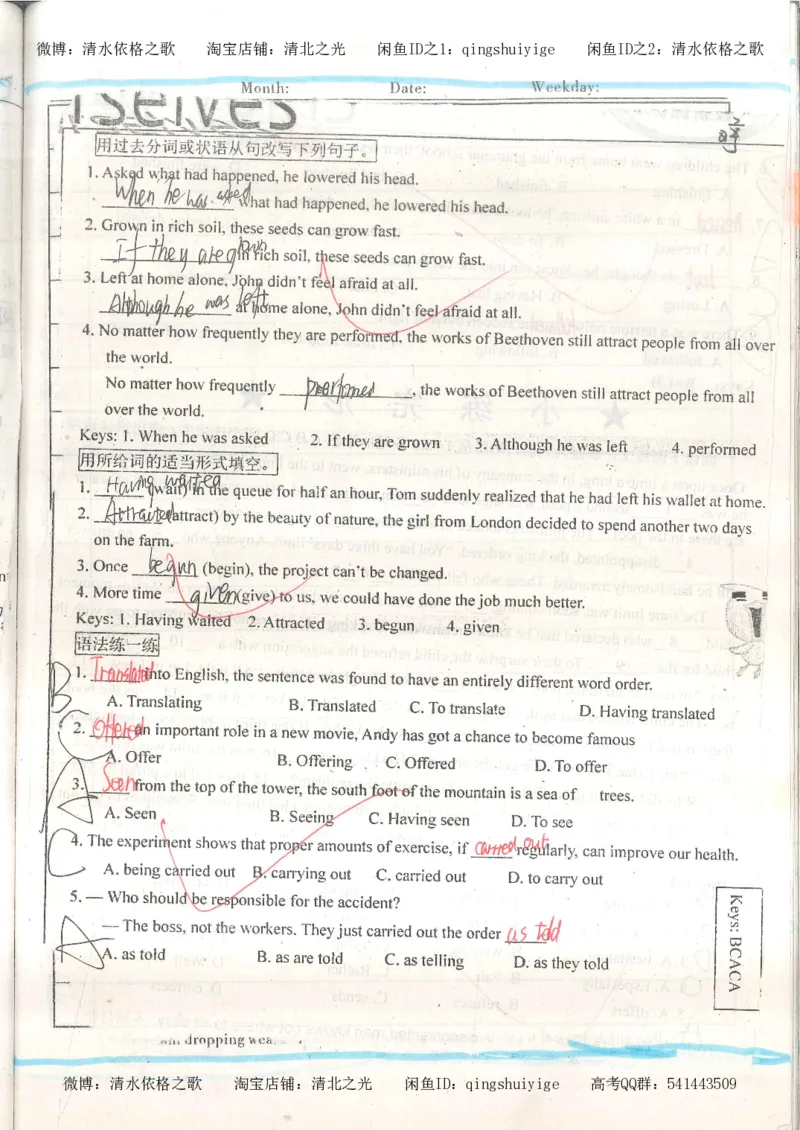 微博：清水依格之歌 淘宝店铺：清北之光 闲鱼ID之1：qingshuiyige 闲鱼ID之2：清水依格之歌
Month: Date: Weekday:
用过去分词或状语从句改写下列句子。
1. Asked what had happened, he lowered his head.
When he was asked what had happened, he lowered his head.
2. Grown in rich soil, these seeds can grow fast.
If they are grown in rich soil, these seeds can grow fast.
3. Left at home alone, John didn't feel afraid at all.
Although he was left at home alone, John didn't feel afraid at all.
4. No matter how frequently they are performed, the works of Beethoven still attract people from all over
the world.
No matter how frequently performed, the works of Beethoven still attract people from all
over the world.
Keys: 1. When he was asked 2. If they are grown 3. Although he was left 4. performed
用所给词的适当形式填空。
1. Having waited (wait) in the queue for half an hour, Tom suddenly realized that he had left his wallet at home.
2. Attracted (attract) by the beauty of nature, the girl from London decided to spend another two days
on the farm.
3. Once begun (begin), the project can't be changed.
4. More time given (give) to us, we could have done the job much better.
Keys: 1. Having waited 2. Attracted 3. begun 4. given
语法练一练
B 1. Translated into English, the sentence was found to have an entirely different word order.
A. Translating B. Translated C. To translate D. Having translated
C 2. Offered an important role in a new movie, Andy has got a chance to become famous
A. Offer B. Offering C. Offered D. To offer
A 3. Seen from the top of the tower, the south foot of the mountain is a sea of trees.
A. Seen B. Seeing C. Having seen D. To see
C 4. The experiment shows that proper amounts of exercise, if carried out regularly, can improve our health.
A. being carried out B. carrying out C. carried out D. to carry out
5. — Who should be responsible for the accident?
A — The boss, not the workers. They just carried out the order as told
A. as told B. as are told C. as telling D. as they told
Keys: BCACA
dropping
微博：清水依格之歌 淘宝店铺：清北之光 闲鱼ID：qingshuiyige 高考QQ群：541443509